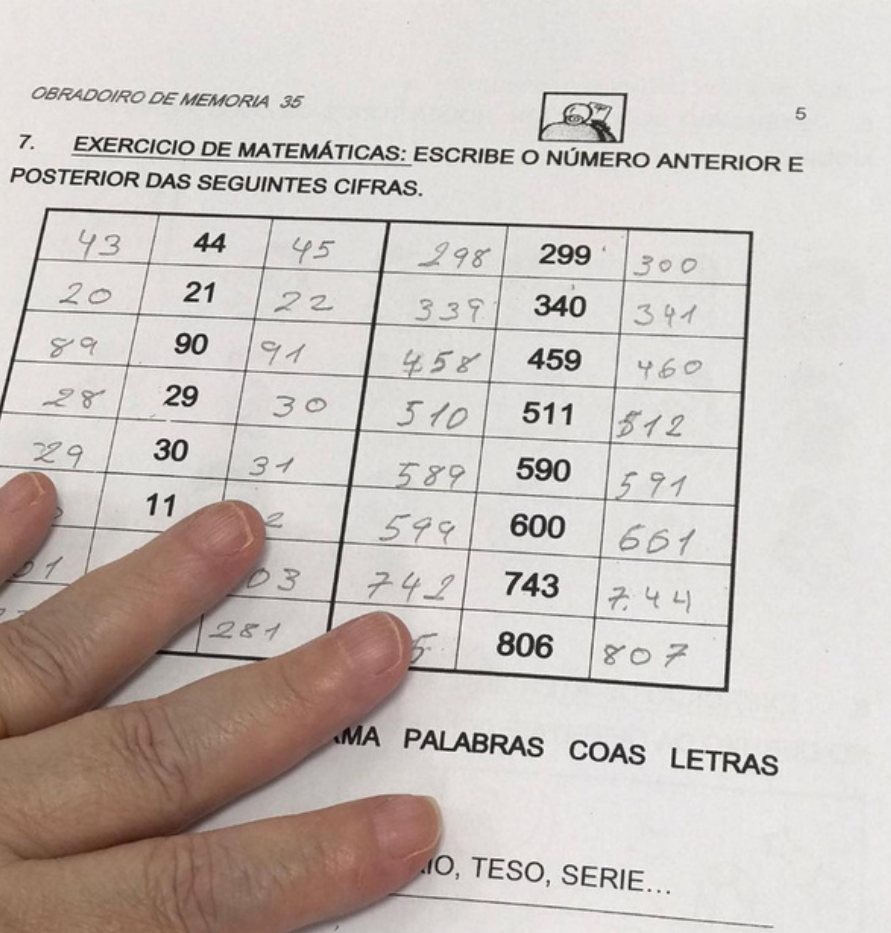 OBRADOIRO DE MEMORIA 35
5
7. EXERCICIO DE MATEMÁTICAS: ESCRIBE O NÚMERO ANTERIOR E
POSTERIOR DAS SEGUINTES CIFRAS.
43 44 45 298 299 300
20 21 22 339 340 341
89 90 91 458 459 460
28 29 30 510 511 512
29 30 31 589 590 591
11 2 599 600 661
01 03 742 743 744
281 5 806 807
PALABRAS COAS LETRAS
TESO, SERIE...